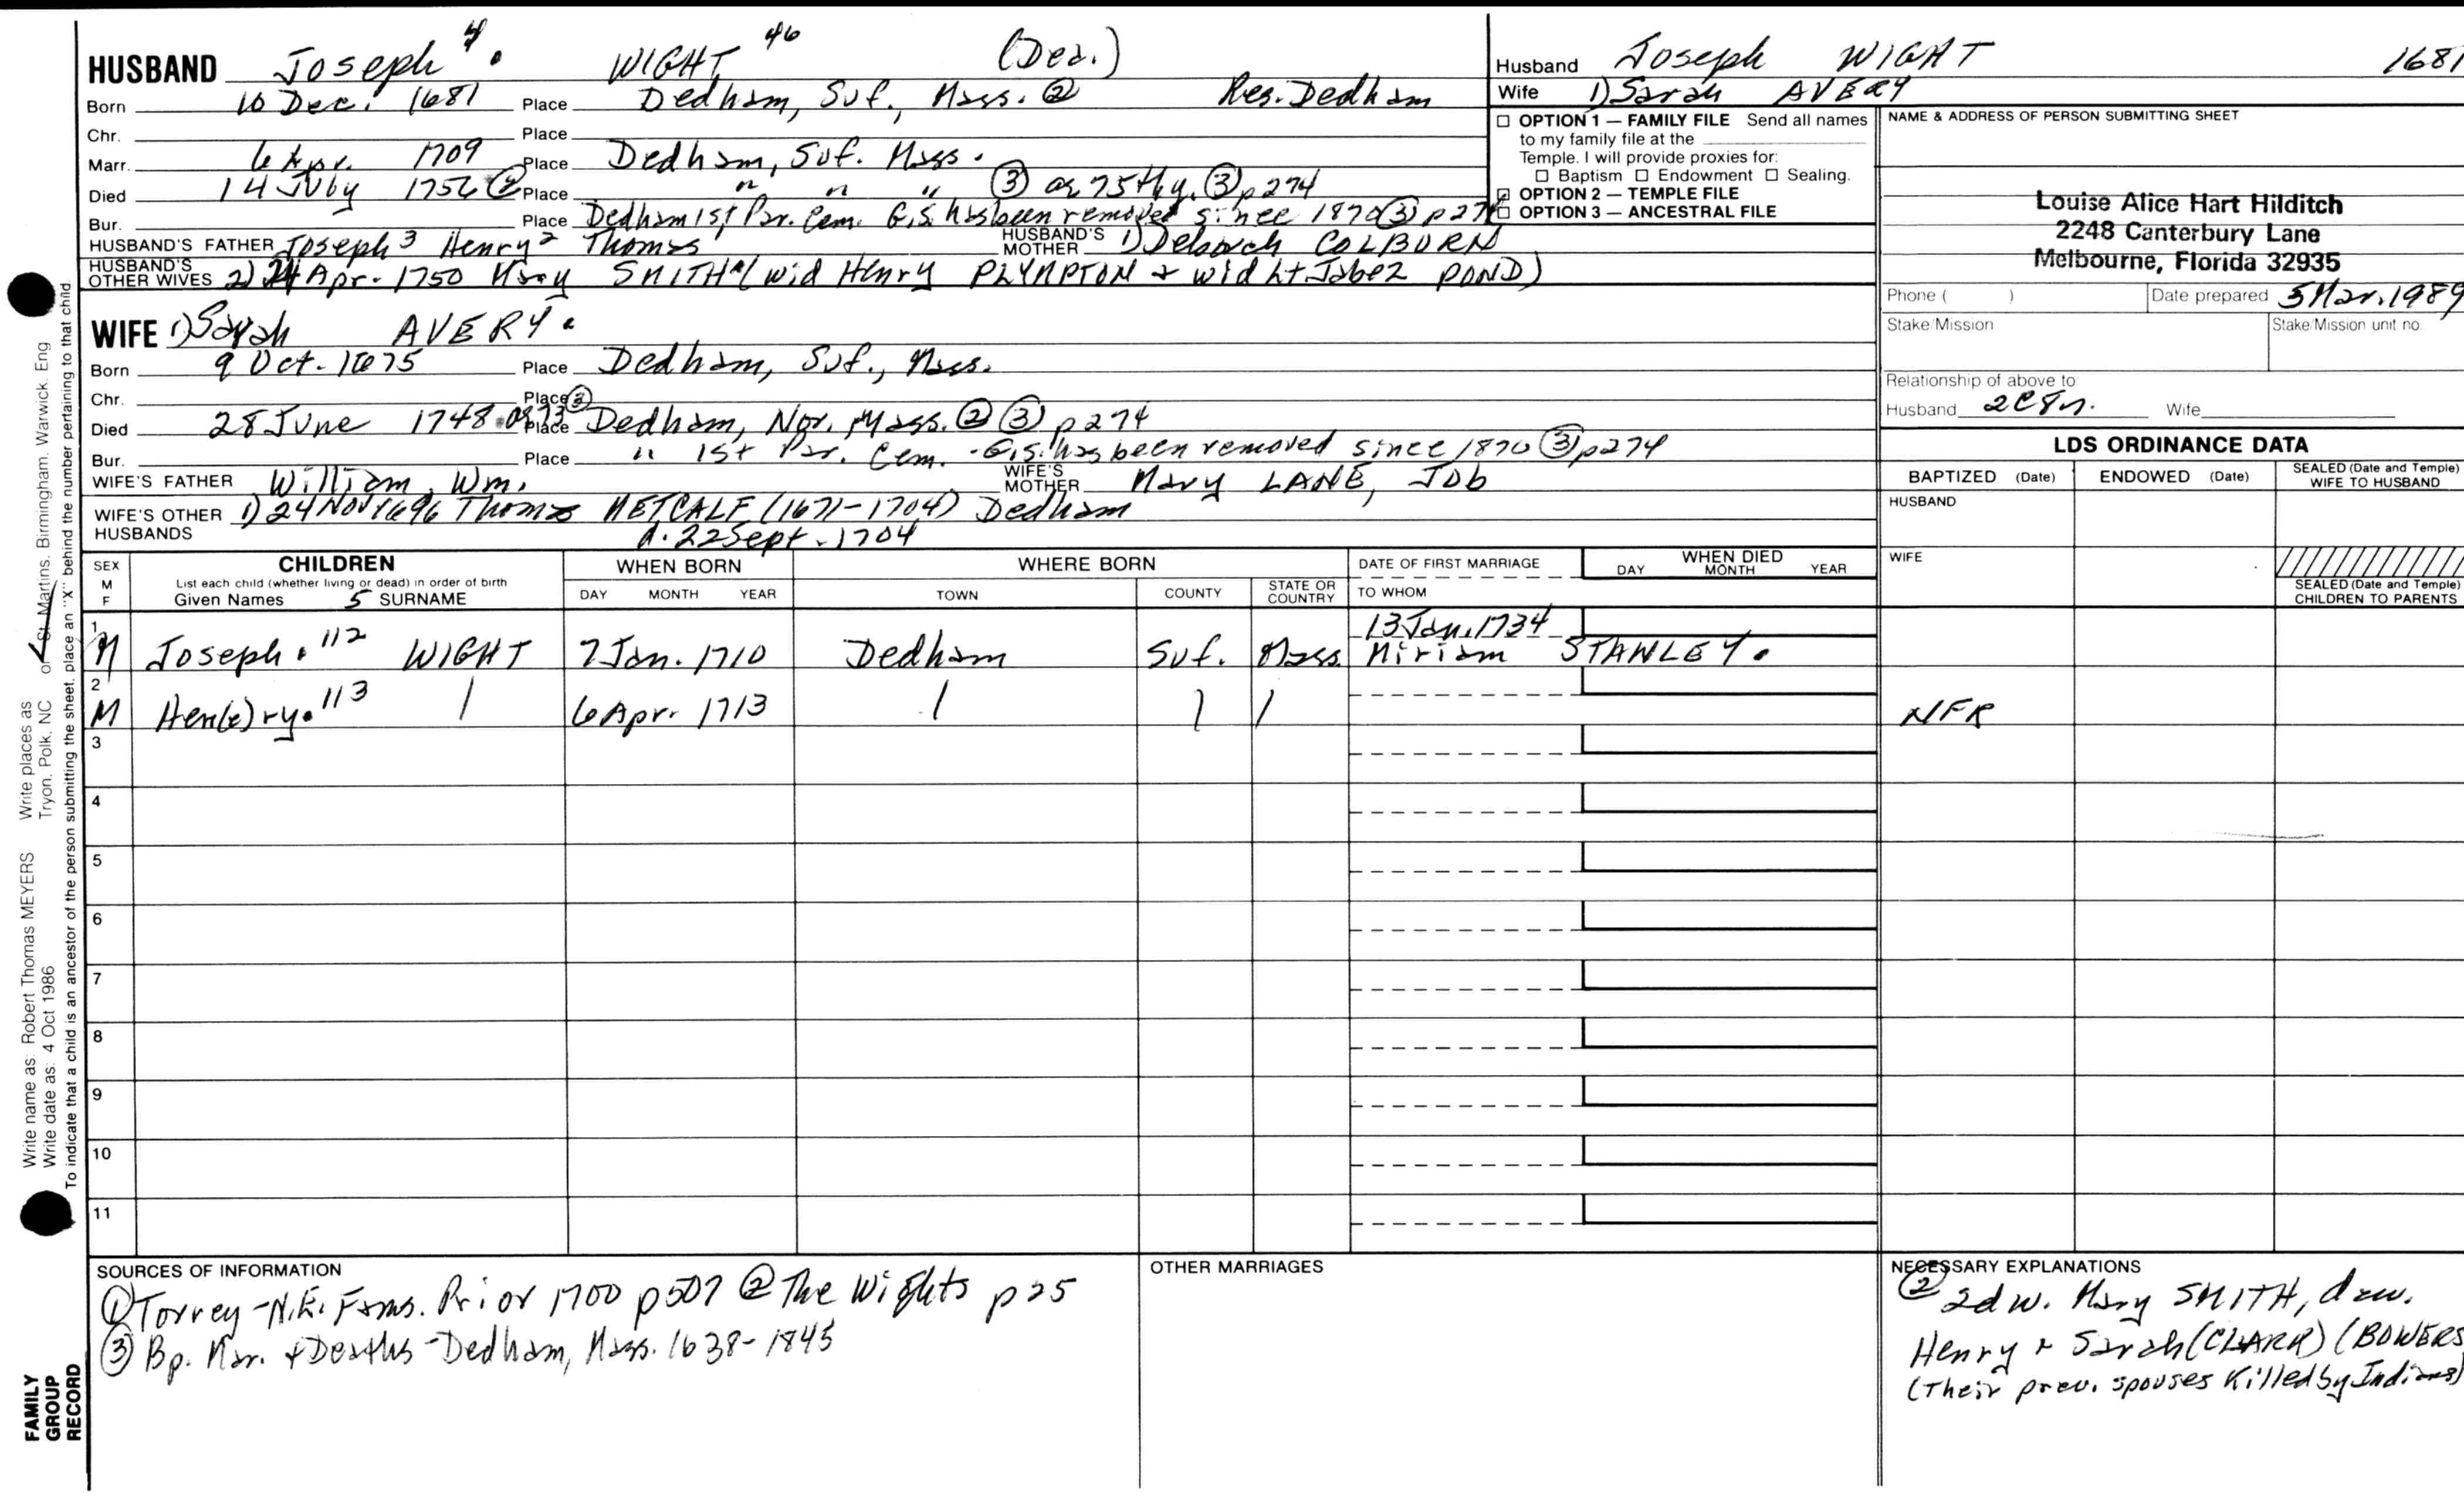 HUSBAND Joseph 4. WIGHT 46 (Dea.)
Born 10 Dec. 1681 Place Dedham, Suf., Mass. ② Res. Dedham
Chr. Place
Marr. 6 Apr. 1709 Place Dedham, Suf. Mass.
Died 14 July 1756 ② Place " " " ③ ae 75th y. ③ p 274
Bur. Place Dedham 1st Par. Cem. G.S. has been removed since 1870 ③ p 274
HUSBAND'S FATHER Joseph 3 Henry 2 Thomas HUSBAND'S MOTHER 1) Deborah COLBURN
HUSBAND'S OTHER WIVES 2) 24 Apr. 1750 Mary SMITH (wid Henry PLYMPTON + wid Lt Jabez POND)
WIFE 1) Sarah AVERY.
Born 9 Oct. 1675 Place Dedham, Suf., Mass.
Chr. Place ③
Died 28 June 1748. ae 73 Place Dedham, Nor. Mass. ② ③ p 274
Bur. Place " 1st Par. Cem. - G.S. has been removed since 1870 ③ p 274
WIFE'S FATHER William, Wm. WIFE'S MOTHER Mary LANE, Job
WIFE'S OTHER HUSBANDS 1) 24 Nov 1696 Thomas METCALF (1671-1704) Dedham
d. 22 Sept. 1704
SEX M F CHILDREN WHEN BORN WHERE BORN DATE OF FIRST MARRIAGE WHEN DIED
List each child (whether living or dead) in order of birth DAY MONTH YEAR
Given Names 5 SURNAME DAY MONTH YEAR TOWN COUNTY STATE OR COUNTRY TO WHOM
13 Jan. 1734
1 M Joseph. 112 WIGHT 7 Jan. 1710 Dedham Suf. Mass. Miriam STANLEY.
2 M Hen(e)ry. 113 / 6 Apr. 1713 / / / NFR
3
4
5
6
7
8
9
10
11
SOURCES OF INFORMATION
① Torrey - N.E. Fams. Prior 1700 p 507 ② The Wights p 25
③ Bp. Mar. + Deaths - Dedham, Mass. 1638-1845
OTHER MARRIAGES
Husband Joseph WIGHT 1681
Wife 1) Sarah AVERY
☐ OPTION 1 — FAMILY FILE Send all names
to my family file at the
Temple. I will provide proxies for:
☐ Baptism ☐ Endowment ☐ Sealing.
OPTION 2 — TEMPLE FILE
☐ OPTION 3 — ANCESTRAL FILE
NAME & ADDRESS OF PERSON SUBMITTING SHEET
Louise Alice Hart Hilditch
2248 Canterbury Lane
Melbourne, Florida 32935
Phone ( ) Date prepared 5 Mar. 1989
Stake/Mission Stake/Mission unit no.
Relationship of above to
Husband Wife
LDS ORDINANCE DATA
BAPTIZED (Date) ENDOWED (Date) SEALED (Date and Temple) WIFE TO HUSBAND
HUSBAND
WIFE
SEALED (Date and Temple) CHILDREN TO PARENTS
NECESSARY EXPLANATIONS
② 2d w. Mary SMITH, dau.
Henry + Sarah (CLARK) (BOWERS
(Their prev. spouses killed by Indians)
Write name as: Robert Thomas MEYERS Write places as: Tryon, Polk, NC
Write date as: 4 Oct 1986 or St Martins, Birmingham, Warwick, Eng
To indicate that a child is an ancestor of the person submitting the sheet, place an "X" behind the number pertaining to that child
FAMILY GROUP RECORD